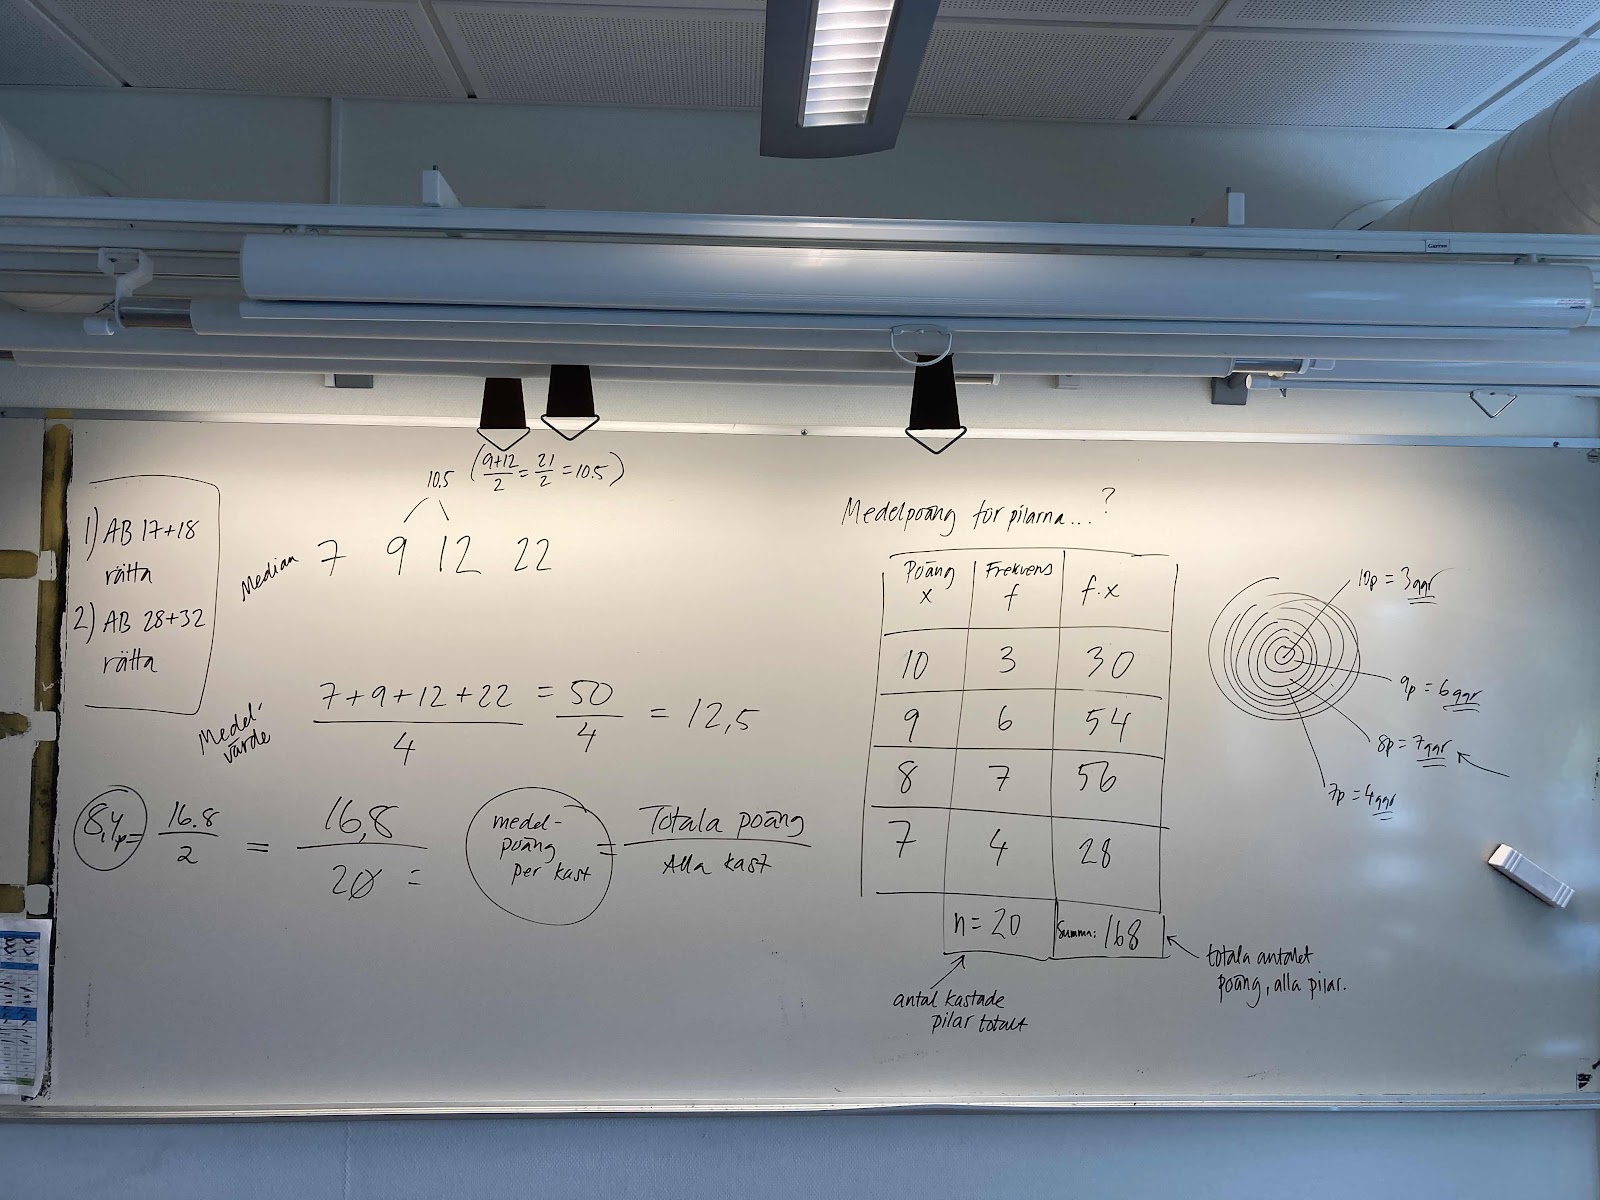 1) AB 17+18
rätta
2) AB 28+32
rätta
10.5 (9+12/2 = 21/2 = 10.5)
Median 7 9 12 22
Medel-
värde
7+9+12+22/4 = 50/4 = 12,5
8,4p = 16.8/2 = 16,8/20 =
medel-
poäng
per kast
= Totala poäng
Alla kast
Medelpoäng för pilarna...?
Poäng x Frekvens f f·x
10 3 30
9 6 54
8 7 56
7 4 28
n=20 Summa: 168
antal kastade
pilar totalt
totala antalet
poäng, alla pilar.
10p = 3ggr
9p = 6ggr
8p = 7ggr
7p = 4ggr